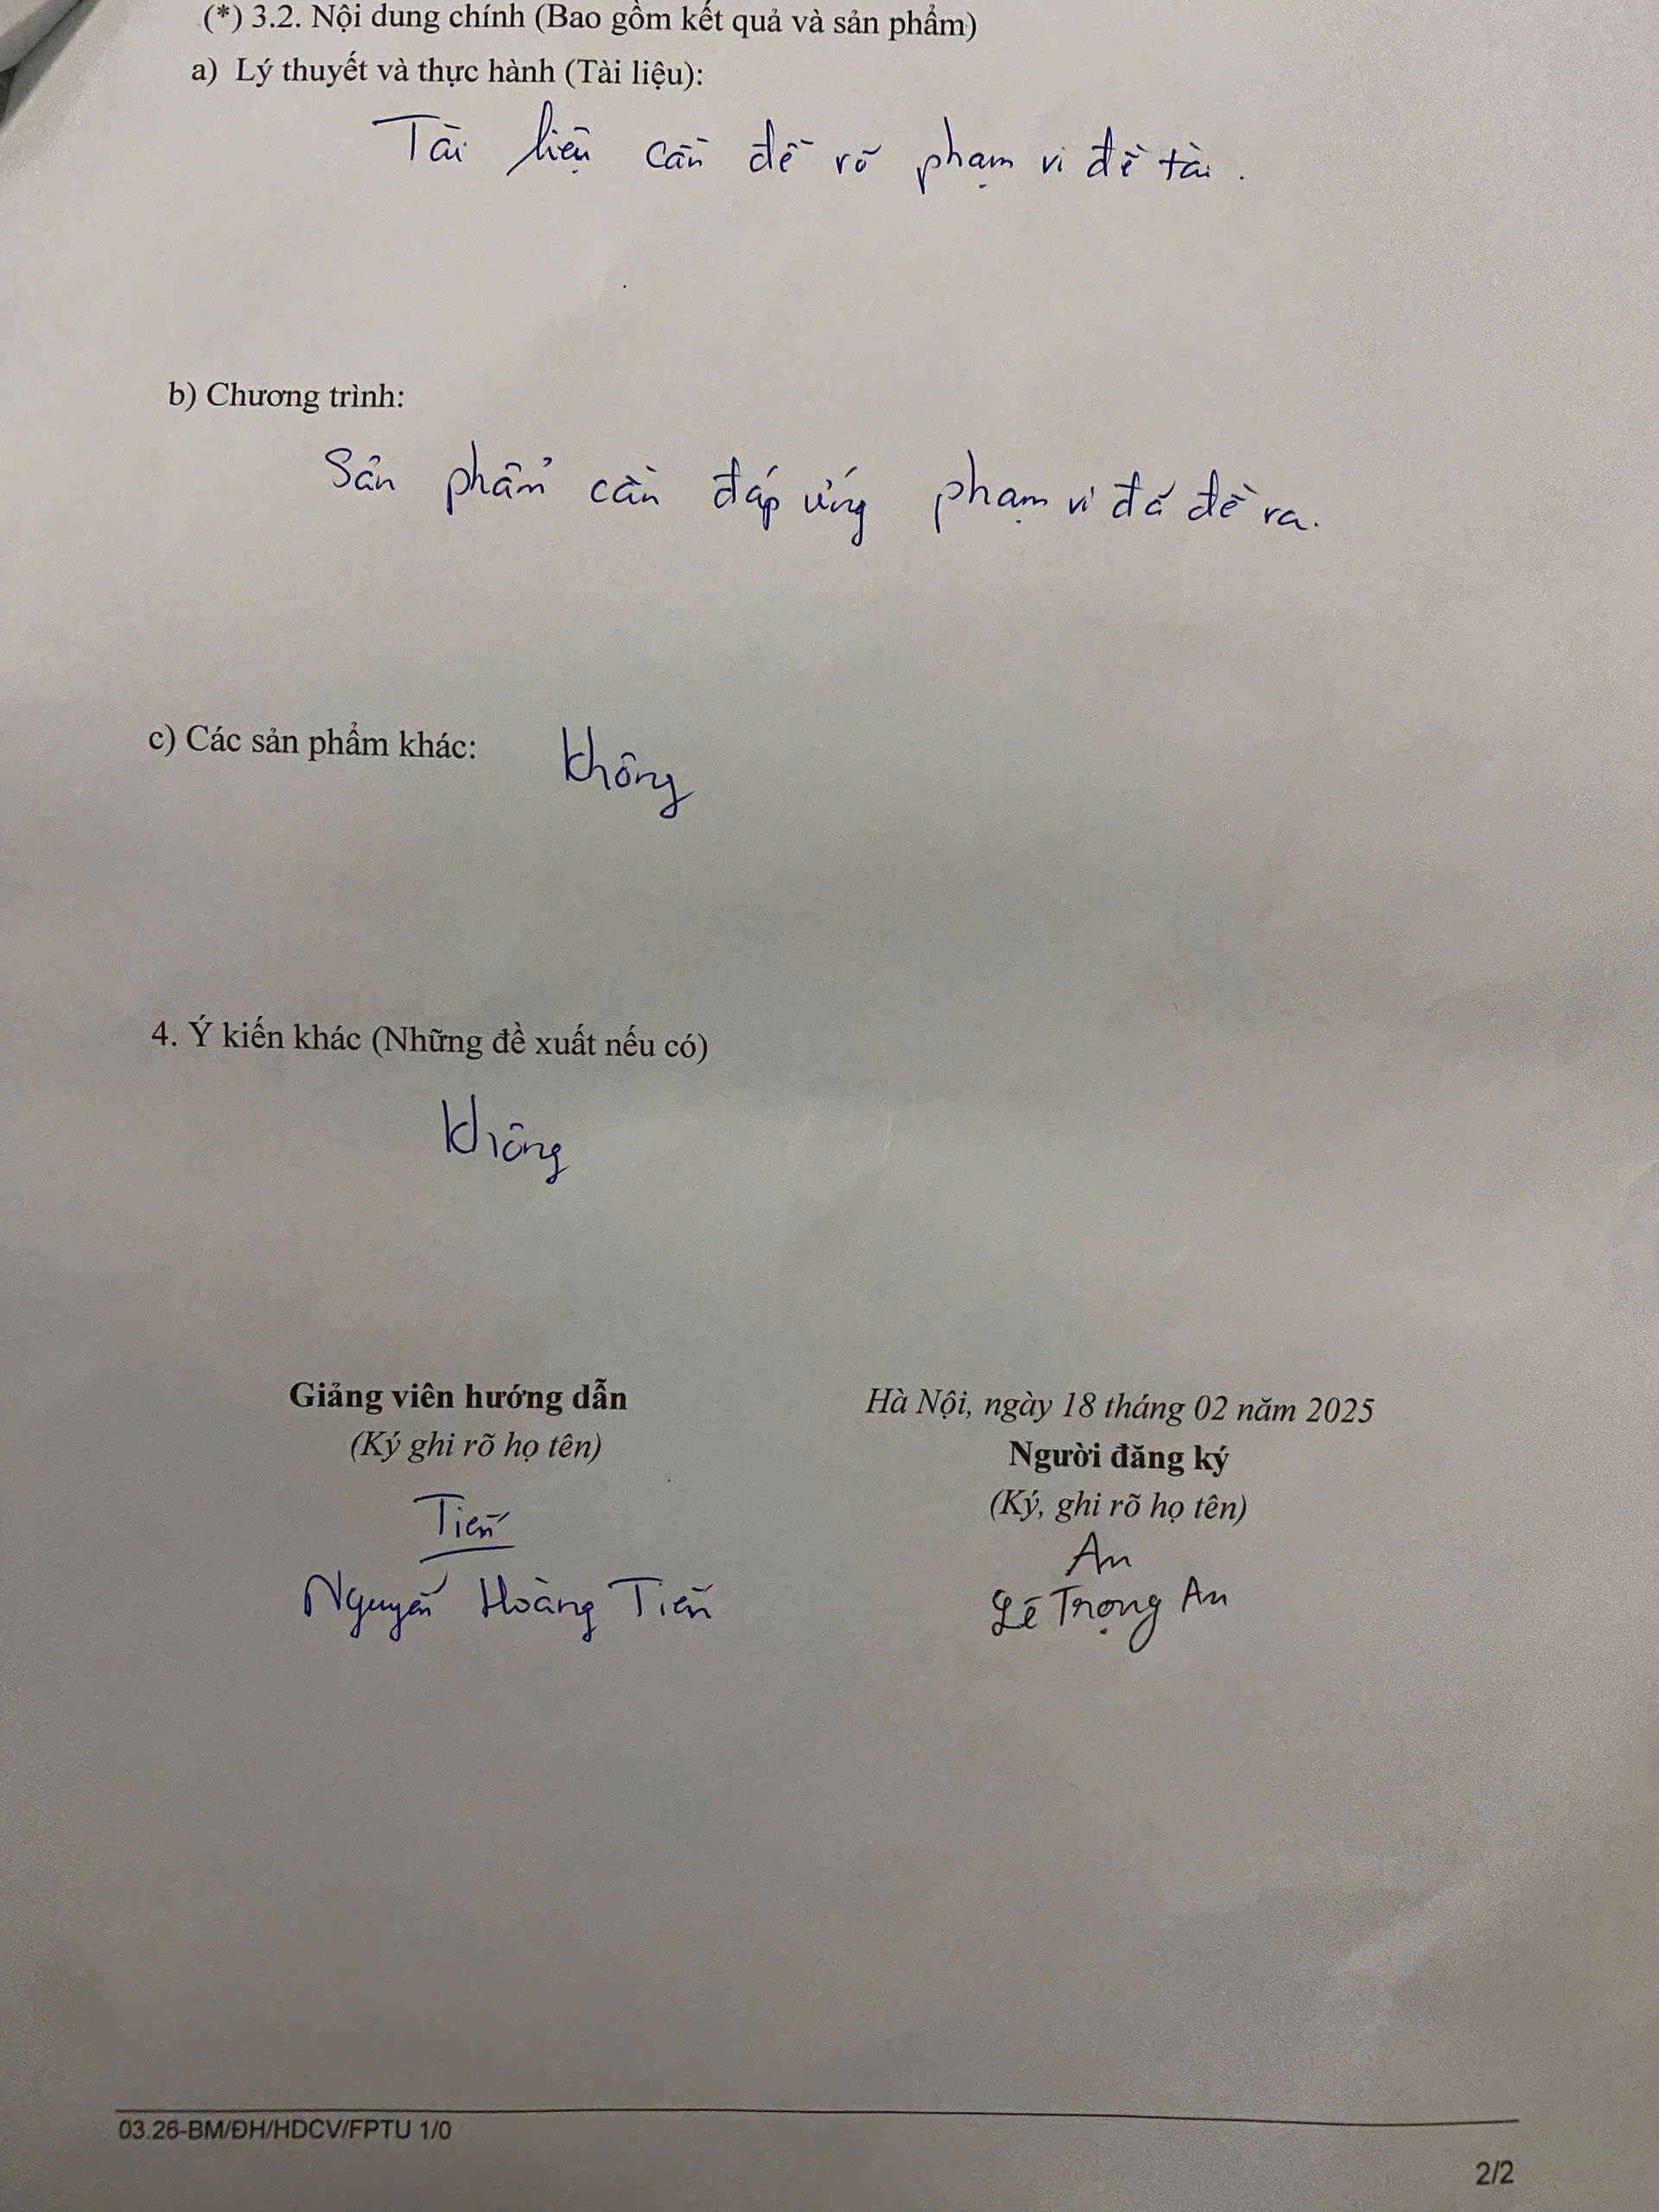 (*) 3.2. Nội dung chính (Bao gồm kết quả và sản phẩm)
a) Lý thuyết và thực hành (Tài liệu):
Tài liệu cần để rõ phạm vi đề tài.
b) Chương trình:
Sản phẩm cần đáp ứng phạm vi đã đề ra.
c) Các sản phẩm khác: Không
4. Ý kiến khác (Những đề xuất nếu có)
Không
Giảng viên hướng dẫn
(Ký ghi rõ họ tên)
Tiến
Nguyễn Hoàng Tiến
Hà Nội, ngày 18 tháng 02 năm 2025
Người đăng ký
(Ký, ghi rõ họ tên)
An
Lê Trọng An
03.26-BM/ĐH/HDCV/FPTU 1/0
2/2